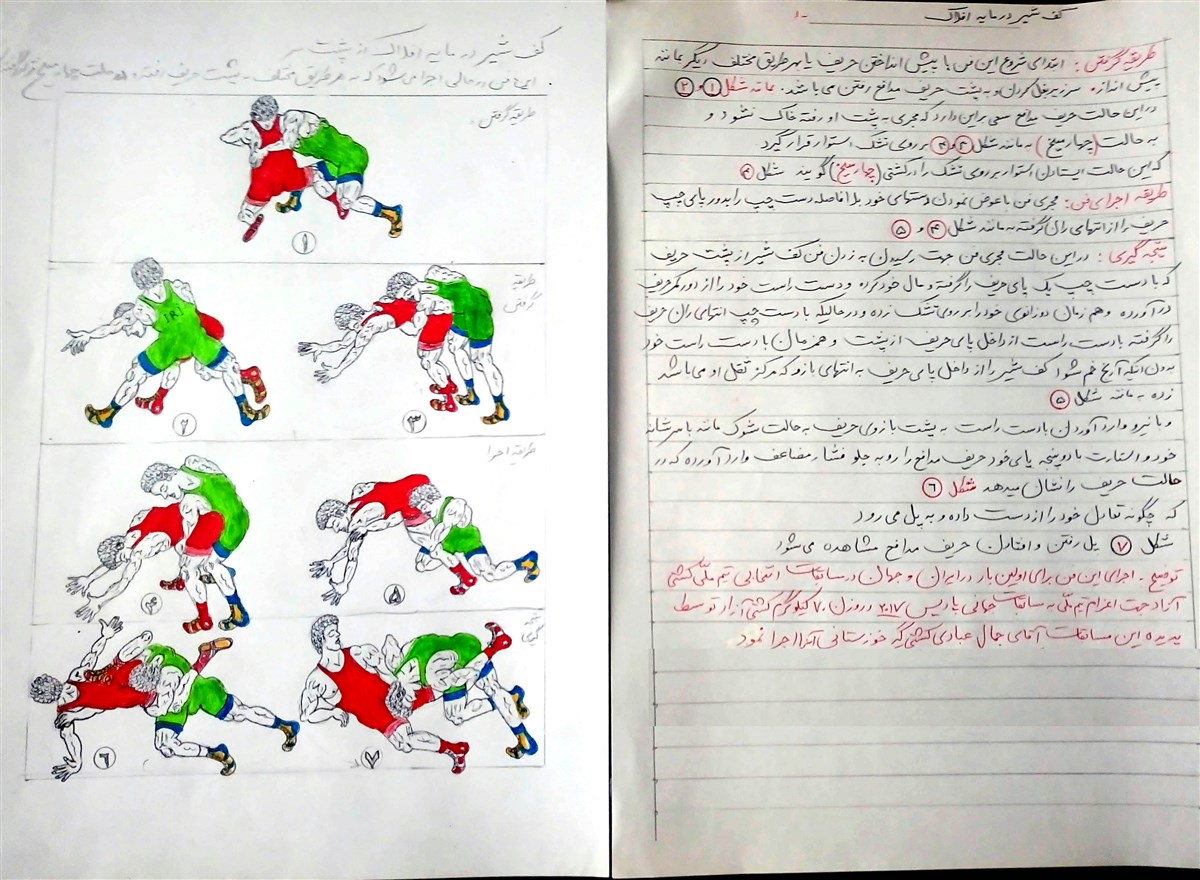 کف شیر در مایه افلاک
طریقه گرفتن : ابتدای شروع این فن با پیش انداختن حریف یا بهر طریق مختلف دیگر مانند
پیش اندازه سرزیربغل کردن و به پشت حریف مدافع رفتن می باشد. مانند شکل ۱ و ۲
در این حالت حریف مدافع سعی براین دارد که مجری به پشت او رفته خاک نشود و
به حالت (چهار میخ) به مانند شکل ۳ و ۴ بر روی تشک استوار قرار گیرد.
که این حالت ایستادن استوار بر روی تشک را در کشتی (چهار میخ) گویند شکل ۳
طریقه اجرای فن: مجری فن با عوض نمودن دستهای خود بلافاصله دست چپ را بدور پای چپ
حریف را از انتهای ران گرفته به مانند شکل ۴ و ۵
نتیجه گیری : در این حالت مجری فن جهت رسیدن به زدن فن کف شیر از پشت حریف
که با دست چپ یک پای حریف را گرفته و مال خود کرده و دست راست خود را از دور کمر حریف
در آورده و هم زمان دو زانوی خود را بر روی تشک زده و در حالیکه با دست چپ انتهای ران حریف
را گرفته با دست راست از داخل پای حریف از پشت و همزمان با دست راست خود
بدون اینکه آرنج خم شود کف شیر را از داخل پای حریف به انتهای بازو که مرکز ثقل او می باشد
زده به مانند شکل ۵
و با نیرو وارد آوردن با دست راست به پشت بازوی حریف به حالت شوک مانند با سرشانه
خود و استارت با دو پنجه پای خود حریف مدافع را رو به جلو فشار مضاعف وارد آورده که در
حالت حریف را نشان میدهد شکل ۶
که چگونه تعادل خود را از دست داده و به پل می رود
شکل ۷ پل رفتن و افتادن حریف مدافع مشاهده می شود
توضیح . اجرای این فن برای اولین بار در ایران و جهان در مسابقات انتخابی تیم ملّی کشتی
آزاد جهت اعزام تیم ملّی به مسابقات جهانی پاریس ۲۰۱۷ در وزن ۷۰ کیلوگرم کشتی آزاد توسط
پدیده این مسابقات آقای جمال عبادی کشتی گیر خوزستانی آنرا اجرا نمود
کف شیر در مایه افلاک از پشت سر
این فن در حالی اجرا می شود که به هر طریق مختلف به پشت حریف افتاده و در حالت چهار میخ
طریقه گرفتن .
۱
طریقه
گرفتن
۲
IRI
۳
طریقه اجرا
۴
۵
نتیجه
گیری
۶
۷